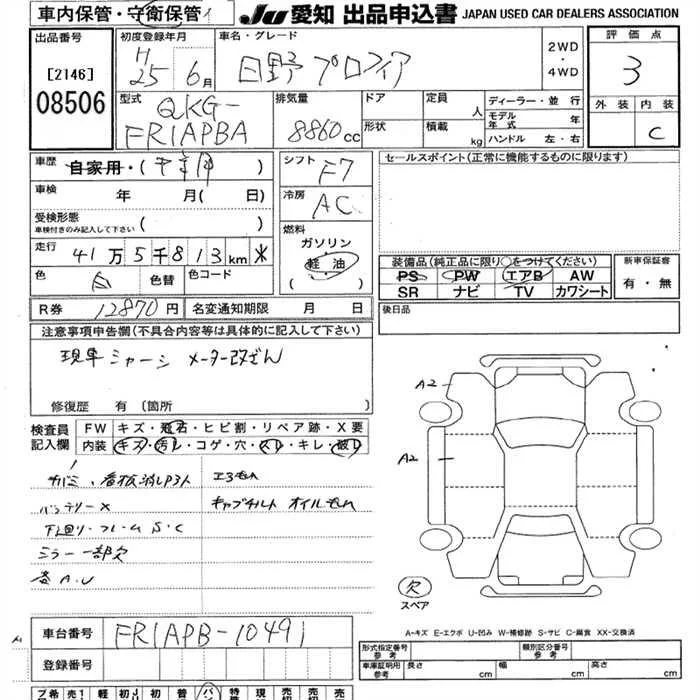 車内保管・守衛保管
JU 愛知 出品申込書 JAPAN USED CAR DEALERS ASSOCIATION
出品番号
[2146]
08506
初度登録年月
H25年 6月
車名・グレード
日野 プロフィア
2WD
・
4WD
評価点
3
外装 内装
C
型式
QKG-
FR1APBA
排気量
8860cc
ドア
形状
定員 人
積載 kg
ディーラー・並行
モデル年式 年
ハンドル 左・右
車歴 自家用・( )
車検 年 月( 日)
受検形態
車検付きのみ記入して下さい ( )
走行 41万5千813km
色 白 色替 色コード
シフト F7
冷房 AC
燃料
ガソリン
軽油
( )
セールスポイント(正常に機能するものに限ります)
装備品(純正品に限り○をつけてください)
PS PW エアB AW
SR ナビ TV カワシート
新車保証書
有・無
後日品
R券 12870円 名変通知期限 月 日
注意事項申告欄(不具合内容等は具体的に記入して下さい)
現車シャーシ メーター改ざん
修復歴 有 〔箇所 〕
検査員記入欄
FW キズ・飛石・ヒビ割・リペア跡・X要
内装 キズ・汚レ・コゲ・穴・スレ・キレ・破レ
サバミ、看板消しP3人
エアもれ
バッテリーX
キャブチルト オイルもれ
下廻り・フレーム S・C
ミラー一部欠
A.U
A2
A2
欠
スペア
A-キズ E-エクボ U-凹み W-補修跡 S-サビ C-腐食 XX-交換済
車台番号 FR1APB-10491
登録番号
型式指定番号 参考
類別区分番号 参考
車庫証明用 参考 長さ cm 幅 cm 高さ cm